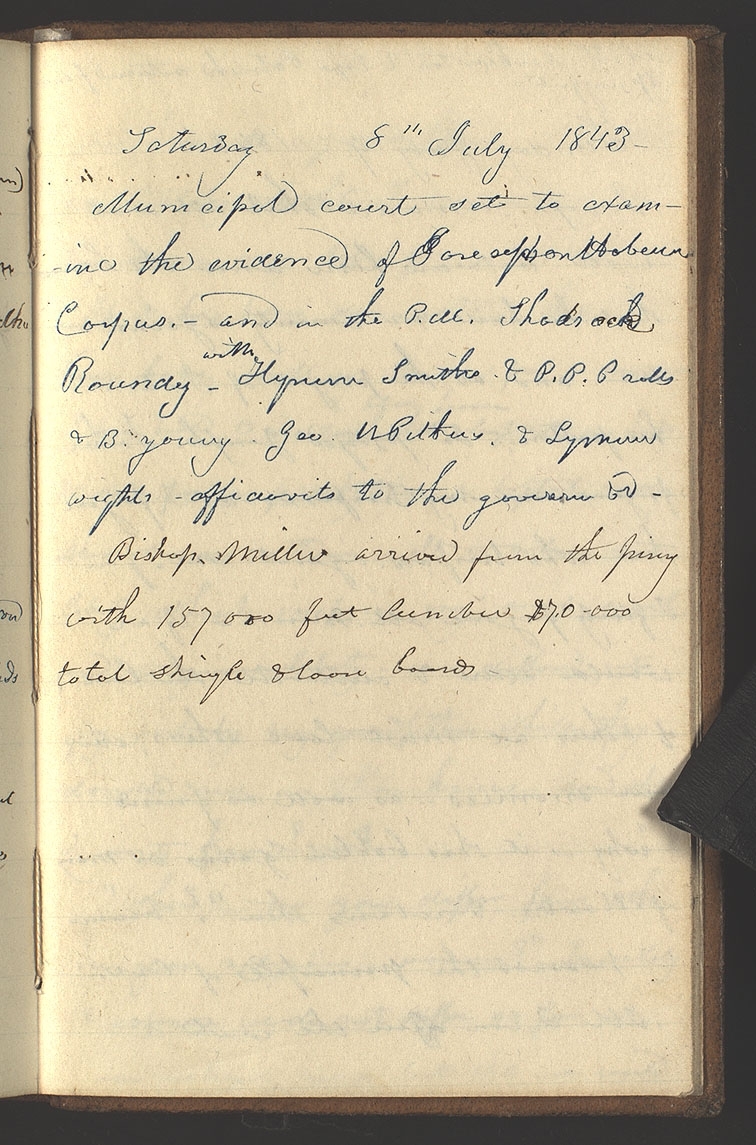 Saturday 8th July 1843-
Municipal court set to exam-
-ine the evidence of Joseph on Habeus
Corpus.- and in the P.M. Shadrach
Roundy - with Hyrum Smiths & P. P. Pratts
& B. young. Geo. W Pitkins. & Lyman
wights - affidavits to the governor -
Bishop. Miller arrived from the piney
with 157000 feet lumber & 70-000
total shingle & loose boards